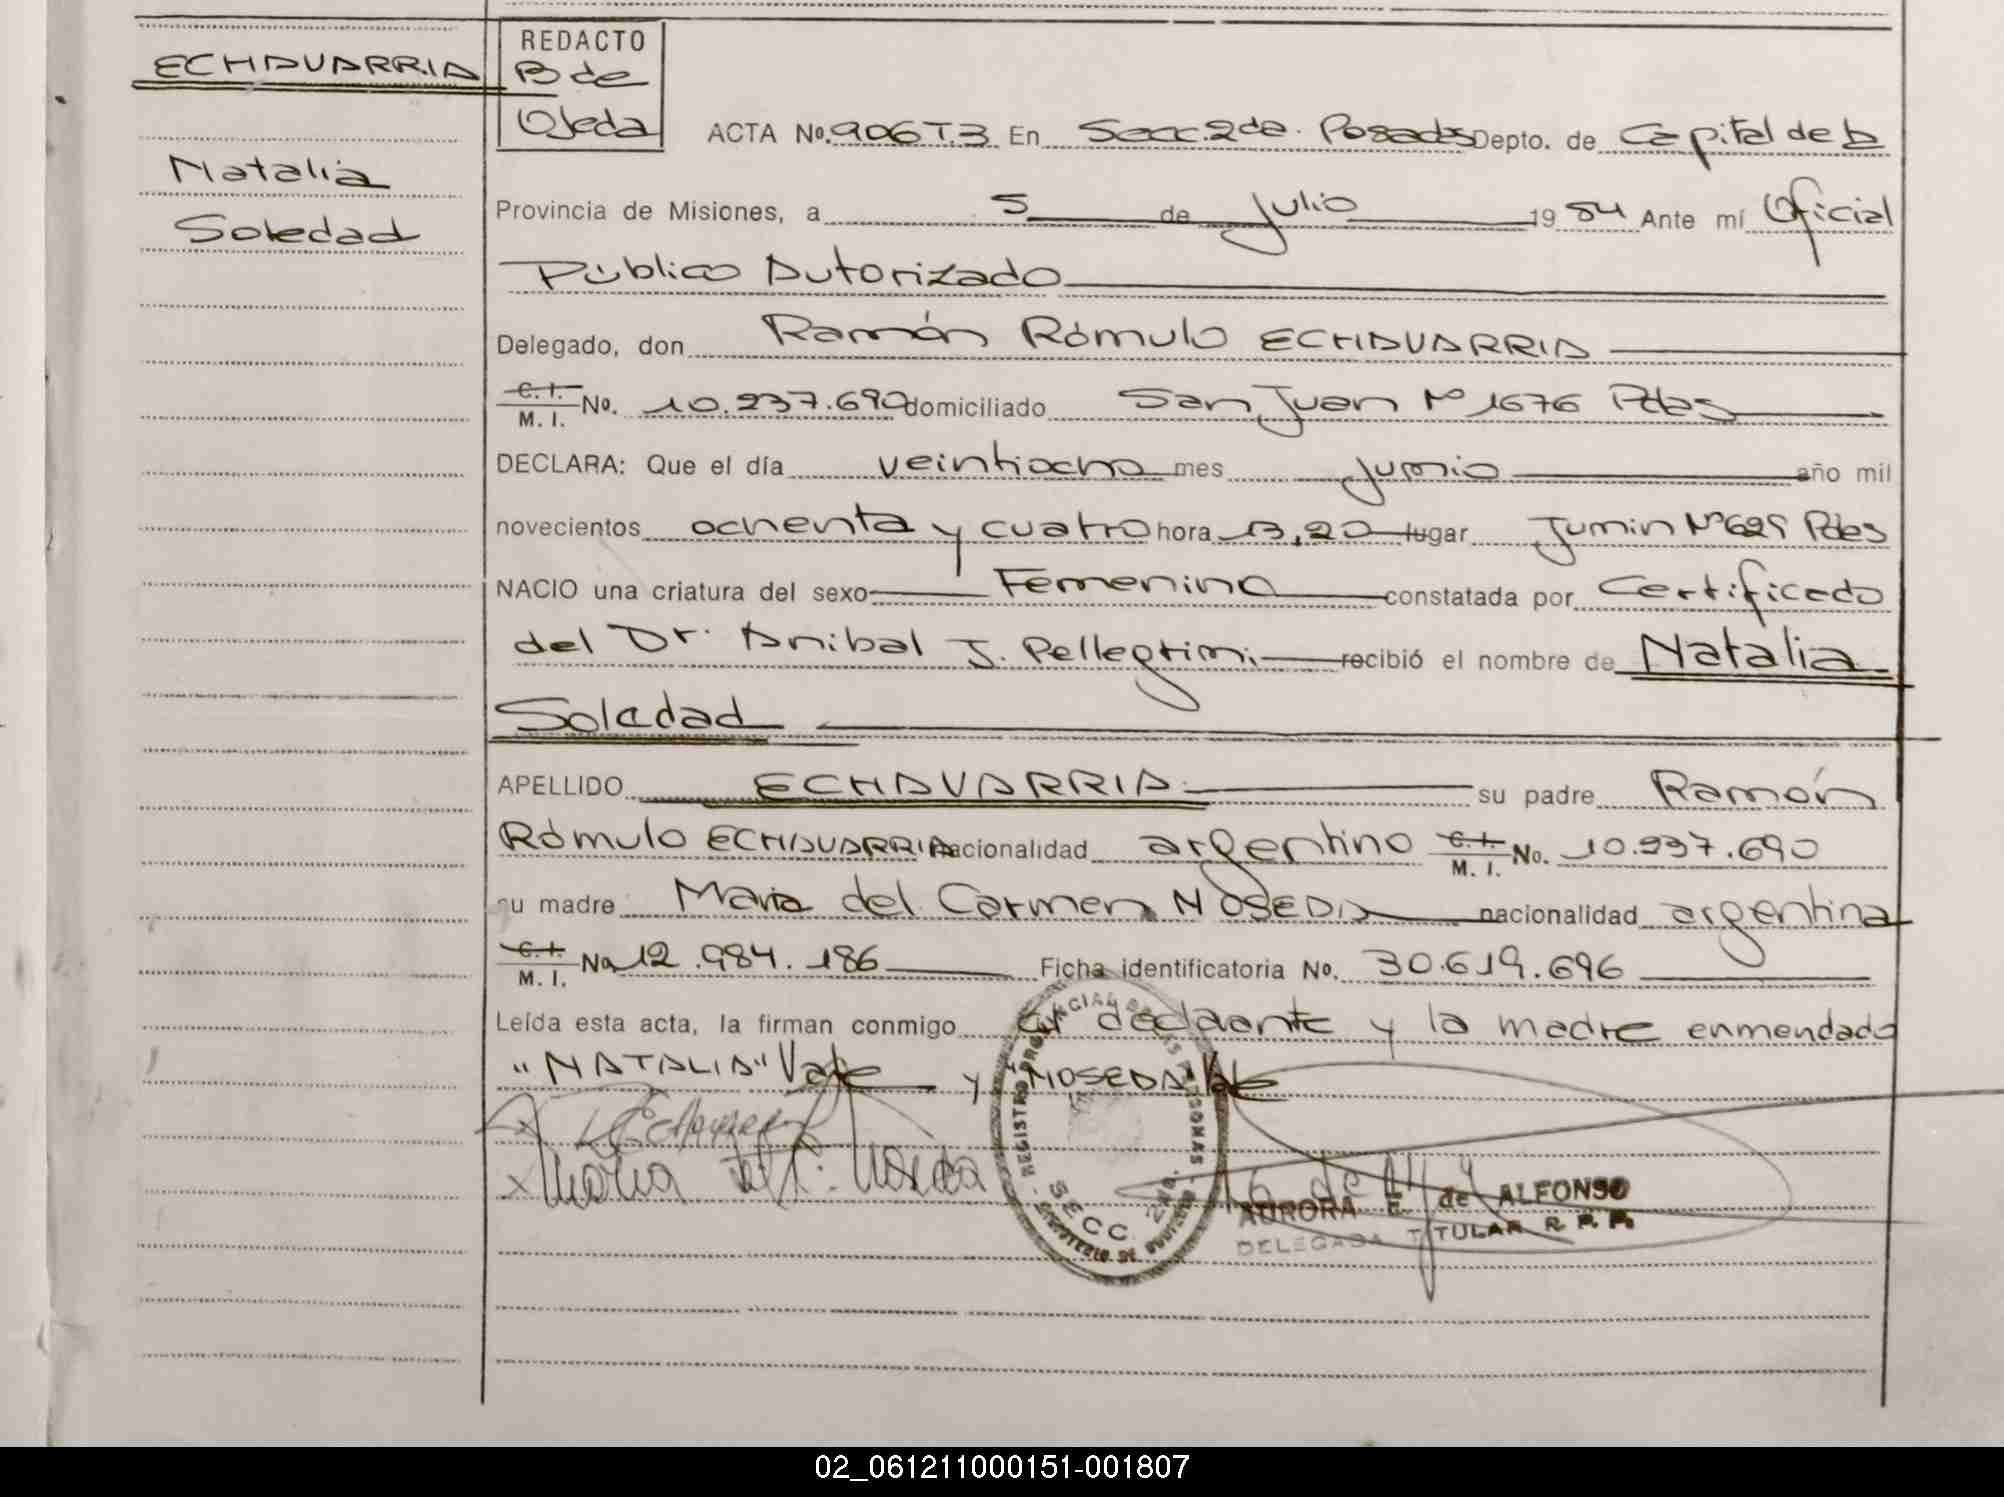 ECHAVARRIA
Natalia
Soledad
REDACTO
B de
Ojeda
ACTA No. 906 T.3 En Secc. 2da. Posadas Depto. de Capital de la
Provincia de Misiones, a 5 de Julio 1984 Ante mí Oficial
Público Autorizado
Delegado, don Ramón Rómulo ECHAVARRIA
C. I. M. I. No. 10.237.690 domiciliado San Juan Nº 1676 Pdas
DECLARA: Que el día veintiocho mes junio año mil
novecientos ochenta y cuatro hora 13,20 lugar Junin Nº 629 Pdas
NACIO una criatura del sexo Femenino constatada por Certificado
del Dr. Anibal J. Pellegrini recibió el nombre de Natalia
Soledad
APELLIDO ECHAVARRIA su padre Ramón
Rómulo ECHAVARRIA nacionalidad argentino C. I. M. I. No. 10.237.690
su madre Maria del Carmen NOSEDA nacionalidad argentina
C. I. M. I. No 12.984.186 Ficha identificatoria No. 30.619.696
Leída esta acta, la firman conmigo el declarante y la madre enmendado
"NATALIA" Vale y "NOSEDA" Vale
Maria del C. Noseda
REGISTRO PROVINCIAL DE LAS PERSONAS
SECC. 2da.
AURORA E. de ALFONSO
DELEGADA TITULAR R. P. P.
02_061211000151-001807